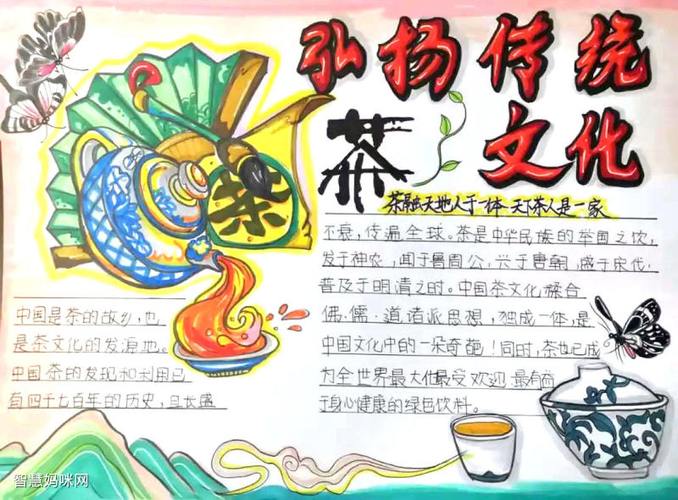 弘扬传统
文化
茶
茶
茶融天地人于一体 天下茶人是一家
中国是茶的故乡,也
是茶文化的发源地。
中国茶的发现和利用已
有四千七百年的历史,且长盛
不衰,传遍全球。茶是中华民族的举国之饮,
发于神农,闻于鲁周公,兴于唐朝,盛于宋代,
普及于明清之时。中国茶文化糅合
佛·儒·道诸派思想,独成一体,是
中国文化中的一朵奇葩!同时,茶也已成
为全世界最大化最受欢迎 最有益
于身心健康的绿色饮料。
智慧妈咪网